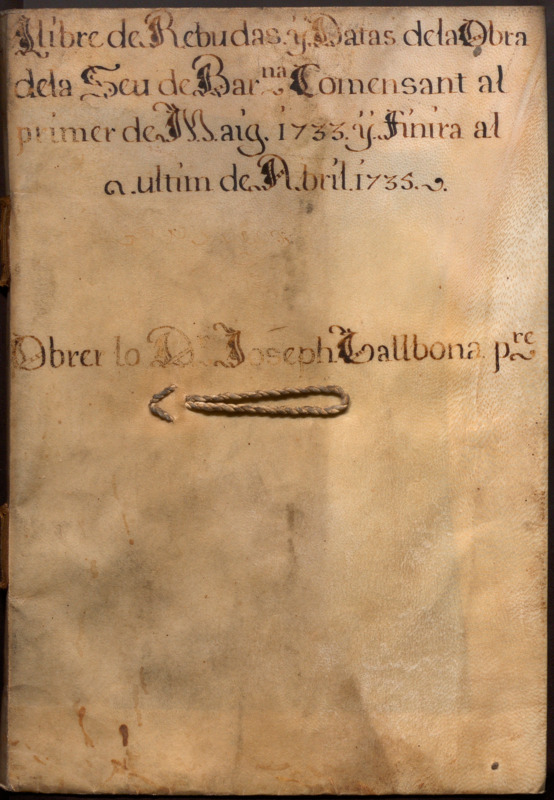 Llibre de Rebudas, ÿ Datas dela Obra
dela Seu de Bar.na Comensant al
primer de Maig. 1733. ÿ Finira al
a ultim de Abril. 1735.
Obrer lo Dr. Joseph Vallbona, pre